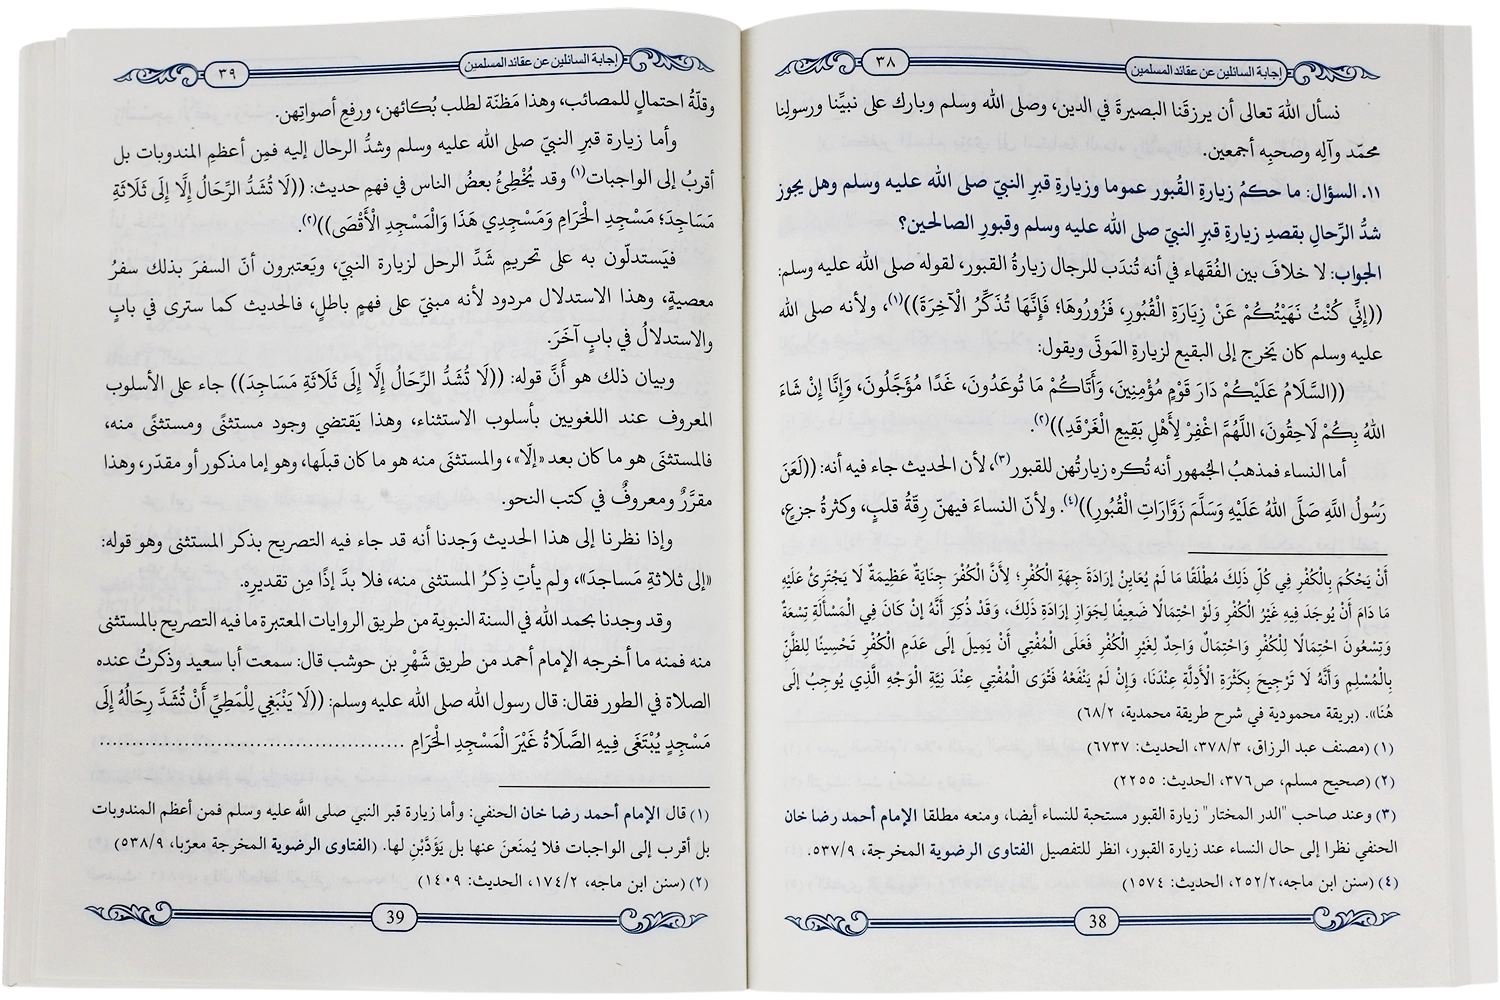 إجابة السائلين عن عقائد المسلمين
٣٨
نسأل اللهَ تعالى أن يرزقَنا البصيرةَ في الدين، وصلى الله وسلم وبارك على نبيِّنا ورسولِنا
محمّد وآلِه وصحبِه أجمعين.
١١. السؤال: ما حكمُ زيارةِ القُبور عموما وزيارةِ قبرِ النبيّ صلى الله عليه وسلم وهل يجوز
شدُّ الرِّحالِ بقصدِ زيارةِ قبرِ النبيّ صلى الله عليه وسلم وقبورِ الصالحين؟
الجواب: لا خلافَ بين الفُقهاء في أنه تُندَب للرجال زيارةُ القبور، لقوله صلى الله عليه وسلم:
((إِنِّي كُنْتُ نَهَيْتُكُمْ عَنْ زِيَارَةِ الْقُبُورِ، فَزُورُوهَا؛ فَإِنَّهَا تُذَكِّرُ الْآخِرَةَ))(١)، ولأنه صلى الله
عليه وسلم كان يَخرج إلى البقيع لزيارةِ المَوتَى ويقول:
((السَّلَامُ عَلَيْكُمْ دَارَ قَوْمٍ مُؤْمِنِينَ، وَأَتَاكُمْ مَا تُوعَدُونَ، غَدًا مُؤَجَّلُونَ، وَإِنَّا إِنْ شَاءَ
اللهُ بِكُمْ لَاحِقُونَ، اللَّهُمَّ اغْفِرْ لِأَهْلِ بَقِيعِ الْغَرْقَدِ))(٢).
أما النساء فمذهبُ الجُمهور أنه تُكره زيارتُهن للقبور(٣)، لأن الحديث جاء فيه أنه: ((لَعَنَ
رَسُولُ اللَّهِ صَلَّى اللهُ عَلَيْهِ وَسَلَّمَ زَوَّارَاتِ الْقُبُورِ))(٤). ولأنّ النساءَ فيهنّ رِقّةُ قلبٍ، وكثرةُ جزعٍ،
أَنْ يَحْكُمَ بِالْكُفْرِ فِي كُلِّ ذَلِكَ مُطْلَقًا مَا لَمْ يُعَايِنْ إرَادَةَ جِهَةِ الْكُفْرِ؛ لِأَنَّ الْكُفْرَ جِنَايَةٌ عَظِيمَةٌ لَا يَجْتَرِئُ عَلَيْهِ
مَا دَامَ أَنْ يُوجَدَ فِيهِ غَيْرُ الْكُفْرِ وَلَوْ احْتِمَالًا ضَعِيفًا لِجَوَازِ إرَادَةِ ذَلِكَ، وَقَدْ ذُكِرَ أَنَّهُ إنْ كَانَ فِي الْمَسْأَلَةِ تِسْعَةٌ
وَتِسْعُونَ احْتِمَالًا لِلْكُفْرِ وَاحْتِمَالٌ وَاحِدٌ لِغَيْرِ الْكُفْرِ فَعَلَى الْمُفْتِي أَنْ يَمِيلَ إلَى عَدَمِ الْكُفْرِ تَحْسِينًا لِلظَّنِّ
بِالْمُسْلِمِ وَأَنَّهُ لَا تَرْجِيحَ بِكَثْرَةِ الْأَدِلَّةِ عِنْدَنَا، وَإِنْ لَمْ يَنْفَعْهُ فَتْوَى الْمُفْتِي عِنْدَ نِيَّةِ الْوَجْهِ الَّذِي يُوجِبُ إلَى
هُنَا». (بريقة محمودية في شرح طريقة محمدية، ٦٨/٢)
(١) (مصنف عبد الرزاق، ٣٧٨/٣، الحديث: ٦٧٣٧)
(٢) (صحيح مسلم، ص٣٧٦، الحديث: ٢٢٥٥)
(٣) وعند صاحب "الدر المختار" زيارة القبور مستحبة للنساء أيضا، ومنعه مطلقا الإمام أحمد رضا خان
الحنفي نظرا إلى حال النساء عند زيارة القبور، انظر للتفصيل الفتاوى الرضوية المخرجة، ٥٣٧/٩.
(٤) (سنن ابن ماجه،٢٥٢/٢، الحديث: ١٥٧٤)
38
إجابة السائلين عن عقائد المسلمين
٣٩
وقلّةُ احتمالٍ للمصائب، وهذا مَظنّة لطلب بُكائهن، ورفعِ أصواتِهن.
وأما زيارة قبرِ النبيّ صلى الله عليه وسلم وشدُّ الرحال إليه فمِن أعظمِ المندوبات بل
أقربُ إلى الواجبات(١) وقد يُخْطِئُ بعضُ الناس في فهمِ حديث: ((لَا تُشَدُّ الرِّحَالُ إِلَّا إِلَى ثَلَاثَةِ
مَسَاجِدَ؛ مَسْجِدِ الْحَرَامِ وَمَسْجِدِي هَذَا وَالْمَسْجِدِ الْأَقْصَى))(٢).
فيَستدلّون به على تحريمِ شَدِّ الرحل لزيارة النبيّ، ويَعتبرون أنّ السفرَ بذلك سفرُ
معصيةٍ، وهذا الاستدلال مردود لأنه مبنيّ على فهمٍ باطلٍ، فالحديث كما سترى في بابٍ
والاستدلالُ في بابٍ آخَرَ.
وبيان ذلك هو أَنَّ قوله: ((لَا تُشَدُّ الرِّحَالُ إِلَّا إِلَى ثَلَاثَةِ مَسَاجِدَ)) جاء على الأسلوب
المعروف عند اللغويين بأسلوب الاستثناء، وهذا يَقتضي وجود مستثنًى ومستثنًى منه،
فالمستثنَى هو ما كان بعد «إلّا»، والمستثنَى منه هو ما كان قبلَها، وهو إما مذكور أو مقدّر، وهذا
مقرَّرٌ ومعروفٌ في كتب النحو.
وإذا نظرنا إلى هذا الحديث وَجدنا أنه قد جاء فيه التصريح بذكر المستثنى وهو قوله:
«إلى ثلاثةِ مَساجدَ»، ولم يأتِ ذِكرُ المستثنى منه، فلا بدَّ إذًا من تقديرِه.
وقد وجدنا بحمد الله في السنة النبوية من طريق الروايات المعتبرة ما فيه التصريح بالمستثنى
منه فمنه ما أخرجه الإمام أحمد من طريق شَهْرِ بن حوشب قال: سمعت أبا سعيد وذكرتُ عنده
الصلاة في الطور فقال: قال رسول الله صلى الله عليه وسلم: ((لَا يَنْبَغِي لِلْمَطِيِّ أَنْ تُشَدَّ رِحَالُهُ إِلَى
مَسْجِدٍ يُبْتَغَى فِيهِ الصَّلَاةُ غَيْرَ الْمَسْجِدِ الْحَرَامِ ..............................................
(١) قال الإمام أحمد رضا خان الحنفي: وأما زيارة قبر النبي صلى الله عليه وسلم فمن أعظم المندوبات
بل أقرب إلى الواجبات فلا يُمنَعنَ عنها بل يَؤَدَّبْنِ لها. (الفتاوى الرضوية المخرجة معرّبا، ٥٣٨/٩)
(٢) (سنن ابن ماجه، ١٧٤/٢، الحديث: ١٤٠٩)
39